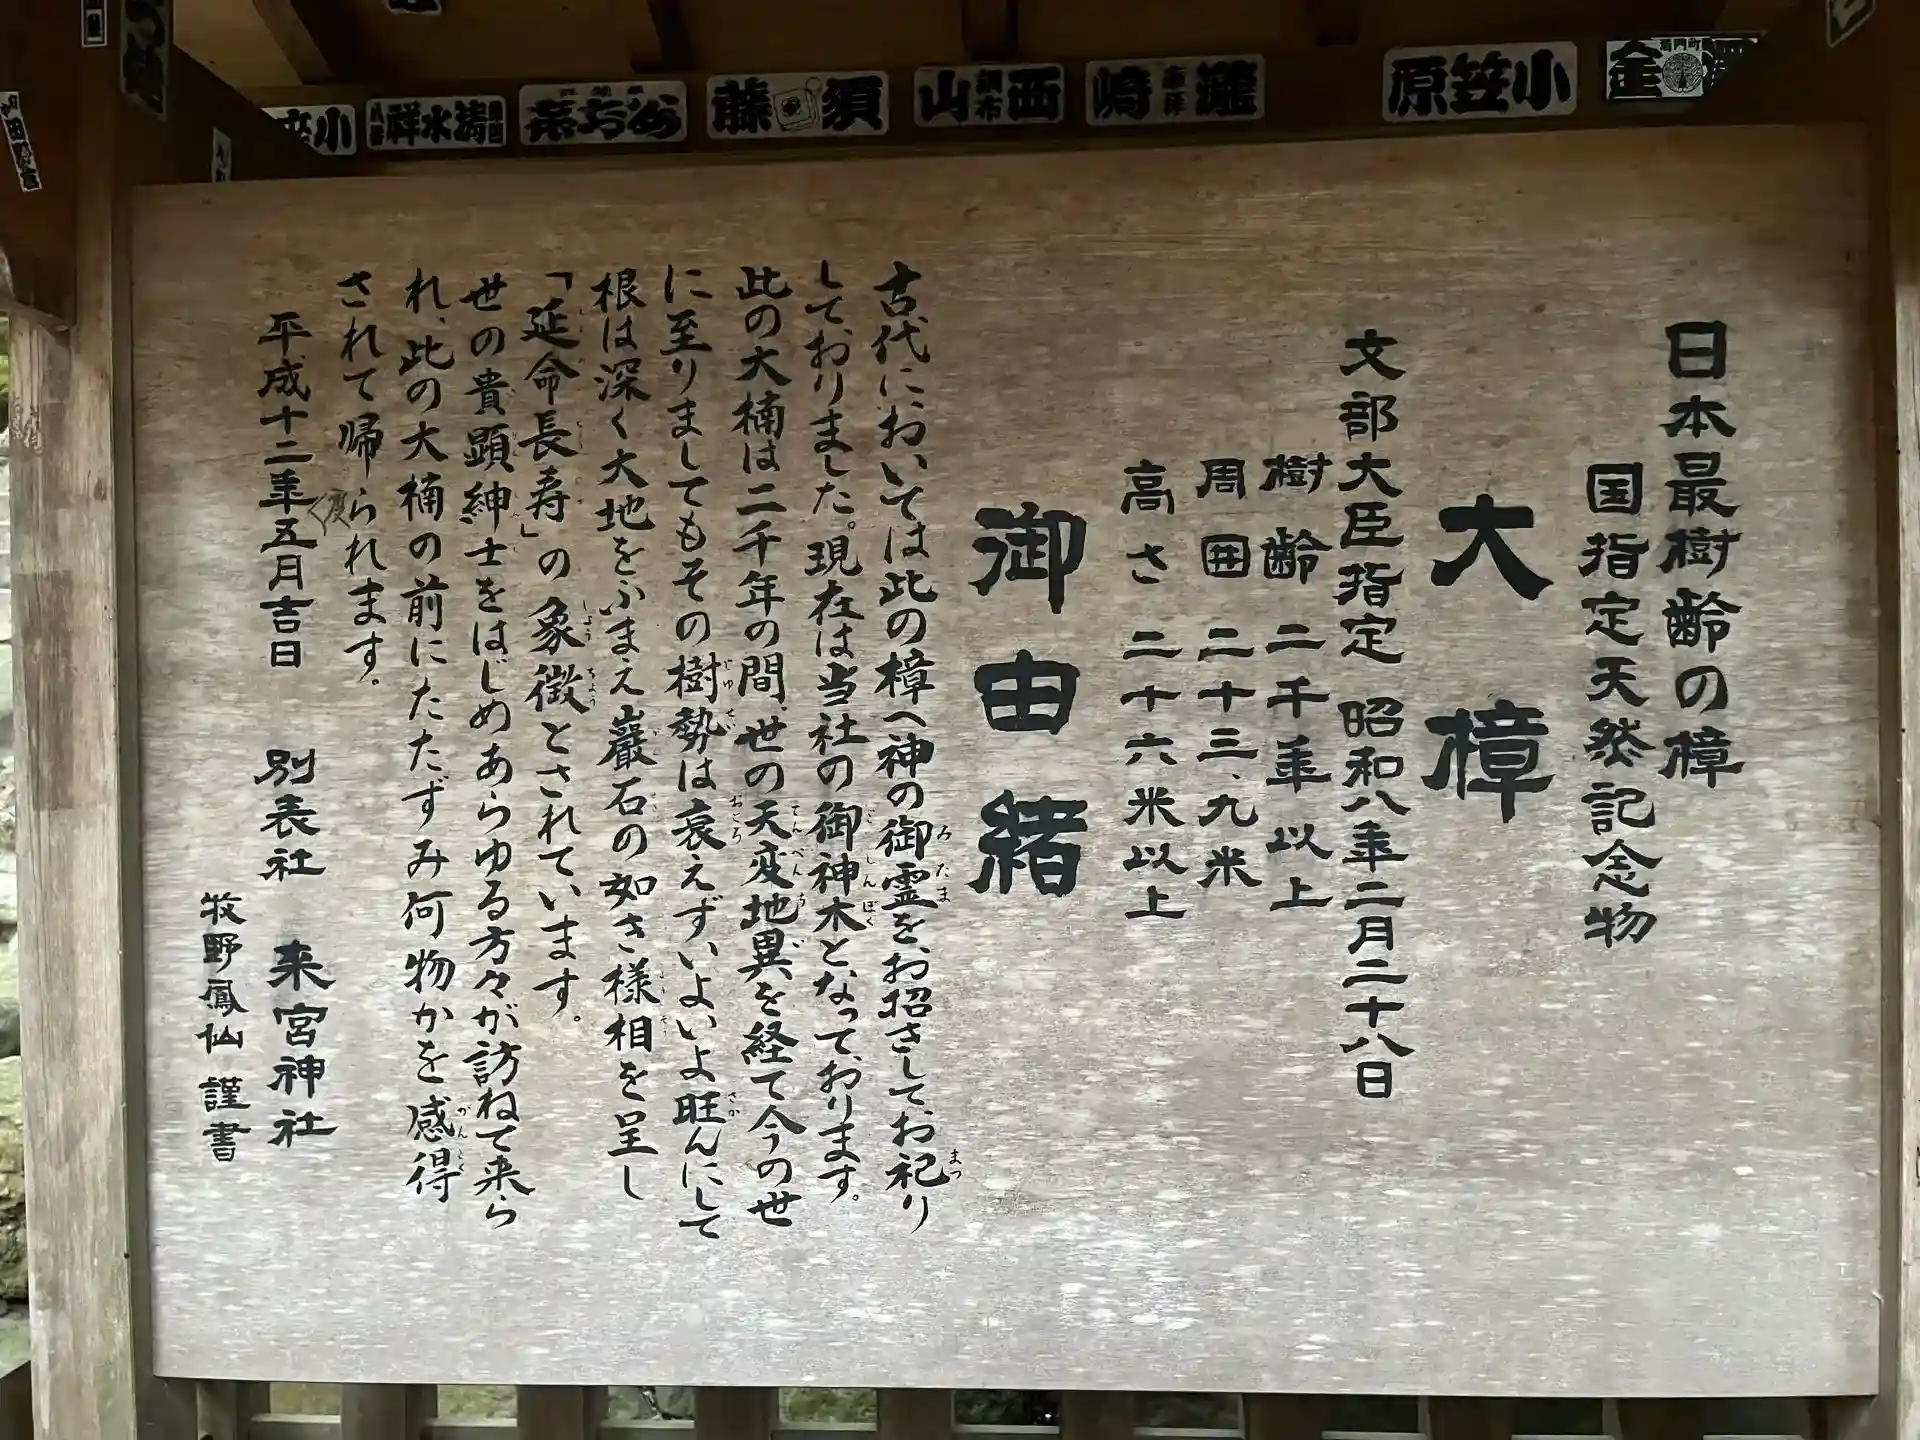 日本最樹齢の樟
国指定天然記念物
大樟
文部大臣指定 昭和八年二月二十八日
樹齢 二千年以上
周囲 二十三、九米
高さ 二十六米以上
御由緒
古代においては此の樟へ神の御霊を、お招きして、お祀り
して、おりました。現在は当社の御神木となって、おります。
此の大楠は二千年の間、世の天変地異を経て今の世
に至りましてもその樹勢は衰えずいよいよ旺んにして
根は深く大地をふまえ巖石の如き様相を呈し
「延命長寿」の象徴とされています。
世の貴顕紳士をはじめあらゆる方々が訪ねて来ら
れ、此の大楠の前にたたずみ何物かを感得
されて帰られます。
平成十二年五月吉日 別表社 来宮神社
牧野鳳仙 謹書
小笠原
瀧崎
西山
調布
須藤
清水祥